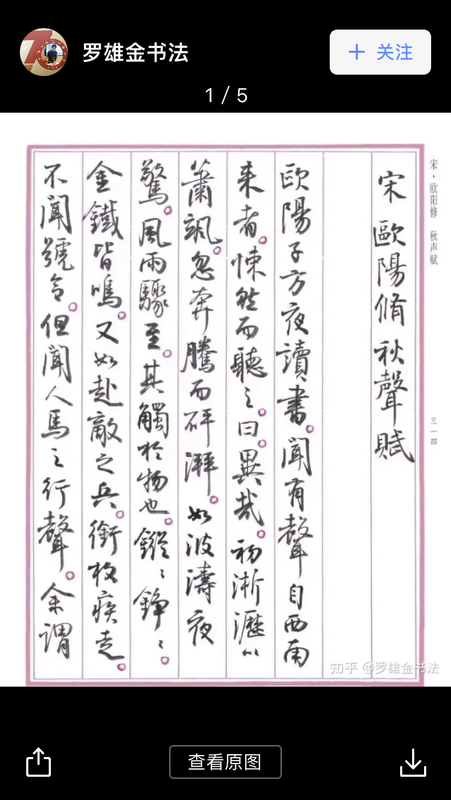 罗雄金书法
+ 关注
1 / 5
宋·欧阳修 秋声赋
三一四
宋 歐陽脩 秋聲賦
歐陽子方夜讀書。聞有聲自西南
来者。悚然而聽之。曰。異哉。初淅瀝以
蕭颯。忽奔騰而砰湃。如波濤夜
驚。風雨驟至。其觸於物也。鏦〻錚〻。
金鐵皆鳴。又如赴敵之兵。銜枚疾走。
不聞號令。但聞人馬之行聲。余謂
知乎 @罗雄金书法
查看原图